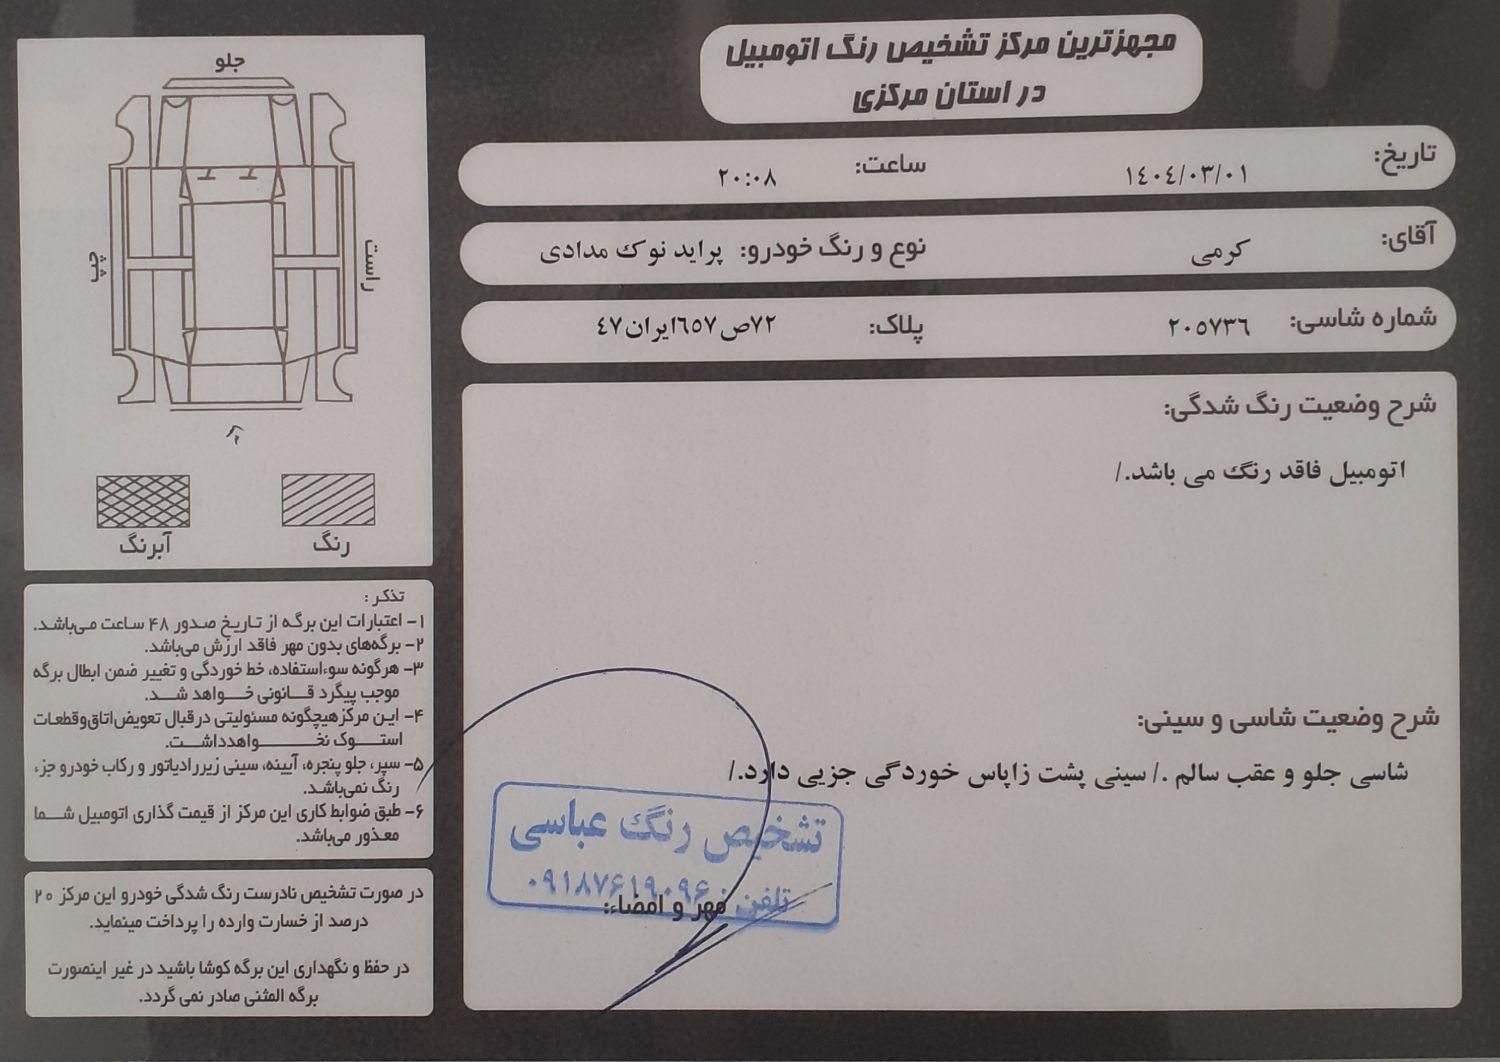 مجهزترین مرکز تشخیص رنگ اتومبیل
در استان مرکزی
تاریخ: ۱٤۰٤/۰۳/۰۱ ساعت: ۲۰:۰۸
آقای: کرمی نوع و رنگ خودرو: پراید نوک مدادی
شماره شاسی: ۲۰۵۷۳٦ پلاک: ۷۲ص٦٥۷ایران٤۷
شرح وضعیت رنگ شدگی:
اتومبیل فاقد رنگ می باشد./
شرح وضعیت شاسی و سینی:
شاسی جلو و عقب سالم ./ سینی پشت زاپاس خوردگی جزیی دارد./
تشخیص رنگ عباسی
تلفن: ۰۹۱۸۷۶۱۹۰۹۶
مهر و امضاء:
جلو
راست
چپ
رنگ
آبرنگ
تذکر :
۱- اعتبارات این برگه از تاریخ صدور ۴۸ ساعت می‌باشد.
۲- برگه‌های بدون مهر فاقد ارزش می‌باشد.
۳- هرگونه سوءاستفاده، خط خوردگی و تغییر ضمن ابطال برگه
موجب پیگرد قانونی خواهد شد.
۴- این مرکز هیچگونه مسئولیتی در قبال تعویض اتاق و قطعات
استوک نخواهد داشت.
۵- سپر، جلو پنجره، آیینه، سینی زیر رادیاتور و رکاب خودرو جزء
رنگ نمی‌باشد.
۶- طبق ضوابط کاری این مرکز از قیمت گذاری اتومبیل شما
معذور می‌باشد.
در صورت تشخیص نادرست رنگ شدگی خودرو این مرکز ۲۰
درصد از خسارت وارده را پرداخت مینماید.
در حفظ و نگهداری این برگه کوشا باشید در غیر اینصورت
برگه المثنی صادر نمی گردد.